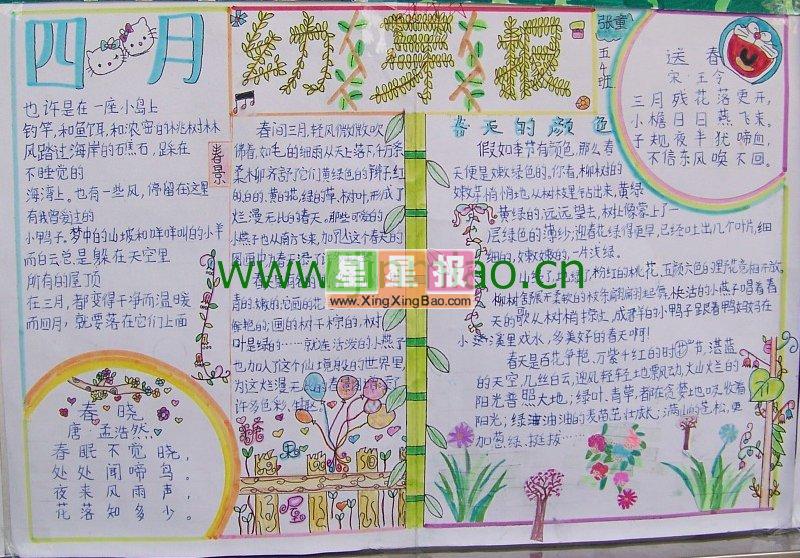 四月
张童
五4班
也许是在一座小岛上
钓竿,和鱼饵,和浓密的桃树林
风踏过海岸的石礁石,踩在
不睡觉的
海湾上。也有一些风,停留在这里
有我曾爱过的
小鸭子。梦中的山坡和咩咩叫的小羊
而白云总是躲在天空里
所有的屋顶
在三月,都变得干净而温暖
而四月,就要落在它们上面
春景
春晓
唐 孟浩然
春眠不觉晓,
处处闻啼鸟。
夜来风雨声,
花落知多少。
春问三月,轻风微微吹
拂着,如毛的细雨从天上落下,千万条
柔柳齐舒了它们黄绿色的辫子红
的白的、黄的花,绿的草,树叶,形成了
烂漫无比的春天。那些可爱的
小燕子也从南方飞来,加入这个春天的
画的树千棵的,树
叶是绿的……就连活泼的小燕子
也加入了这个仙境般的世界里
为这烂漫
许多色彩、生趣
春天的颜色
假如季节有颜色,那么春
天便是嫩绿色的,你看,柳树的
嫩芽悄悄地从树枝里钻出来,黄绿
黄绿的,远远望去,树上像蒙上了一
层绿色的薄纱;迎春花绿得更早,已经吐出几个叶片,细
细的,嫩嫩的,一片浅绿。
粉红的桃花,五颜六色的
柳树舒展开柔软的枝条翩翩起舞,快活的小燕唱着春
天的歌从树梢掠过,成群的小鸭子呈跟着鸭妈妈在
小溪里戏水,多美好的春天啊!
春天是百花争艳,万紫千红的时节,湛蓝
的天空,几丝白云,迎风轻轻地飘动,火灿火烂的
阳光普照大地;绿叶,青草,都在贪婪地吸收着
阳光;绿油油的麦苗茁壮成长;满山的苍松,更
加葱绿、挺拔……
送春
宋·王令
三月残花落更开,
小檐日日燕飞来。
子规夜半犹啼血,
不信东风唤不回。
星星报
www.XingXingBao.com